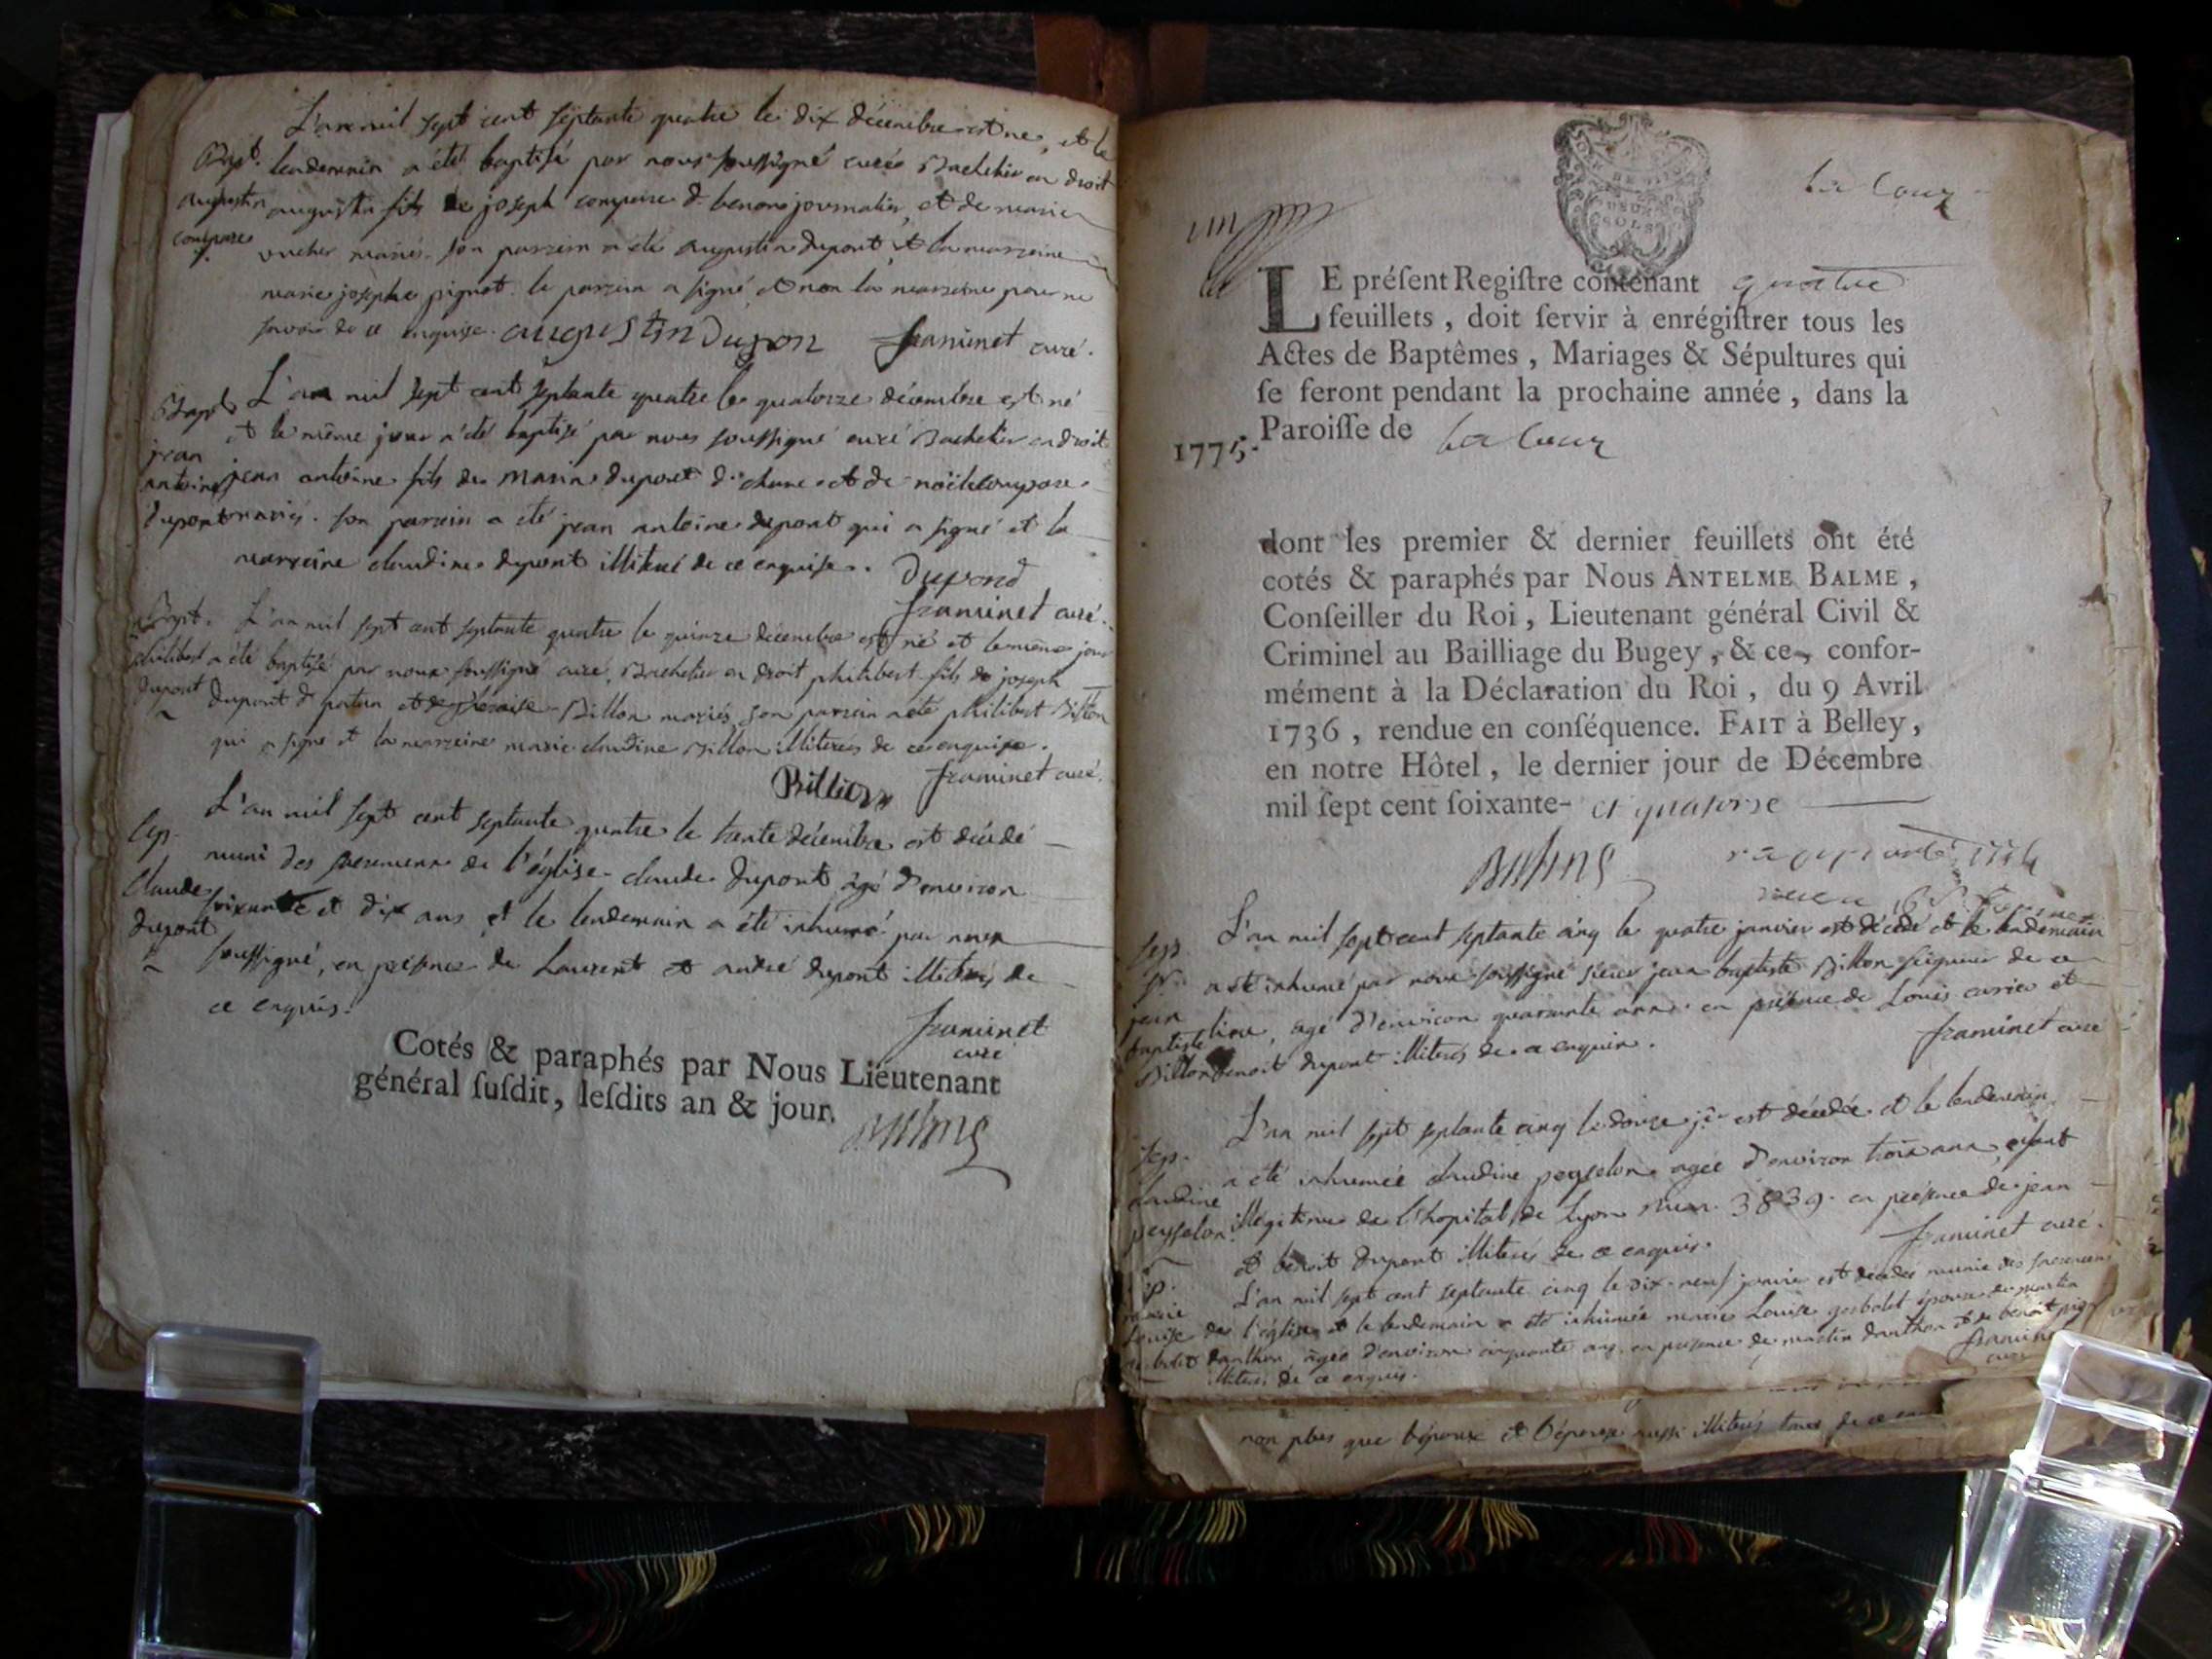 L'an mil sept cent septante quatre le dix décembre est né, et le
Bapt. lendemain a été baptisé par nous soussigné curé Bachelier en droit
augustin augustin fils de joseph compare d benone journalier, et de marie
compare vucher mariés. son parrein a été augustin dupont, et la marreine
marie josephe pignot. le parrein a signé, et non la marreine pour ne
savoir de ce enquise. augustin dupon framinet curé.
Bapt L'an mil sept cent septante quatre le quatorze décembre est né
et le même jour a été baptisé par nous soussigné curé Bachelier en droit
jean
antoine jean antoine fils de marin dupont et de compare
dupont mariés. son parrein a été jean antoine dupont qui a signé et la
marreine claudine dupont illiteré de ce enquise. Dupond
framinet curé.
Bapt. L'an mil sept cent septante quatre le quinze décembre est né et le même jour
philibert a été baptisé par nous soussigné curé, Bachelier en droit philibert fils de joseph
dupont dupont d et de Billon mariés, son parrein a été philibert Billon
qui a signé et la marreine marie claudine Billon illiterée de ce enquise.
Billion framinet curé.
L'an mil sept cent septante quatre le trente décembre est décédé
Sep. muni des sacremens de l'église claude dupont, âgé d'environ
claude soixante et dix ans, et le lendemain a été inhumé par nous
dupont soussigné, en présence de Laurent et andré dupont illiterés de
ce enquis.
framinet
curé
Cotés & paraphés par Nous Lieutenant
général ſuſdit, leſdits an & jour.
Balme
La Coux
LE préſent Regiſtre contenant quatre
feuillets, doit ſervir à enrégiſtrer tous les
Actes de Baptêmes, Mariages & Sépultures qui
ſe feront pendant la prochaine année, dans la
1775. Paroiſſe de La Coux
dont les premier & dernier feuillets ont été
cotés & paraphés par Nous ANTELME BALME,
Conſeiller du Roi, Lieutenant général Civil &
Criminel au Bailliage du Bugey, & ce, confor-
mément à la Déclaration du Roi, du 9 Avril
1736, rendue en conſéquence. FAIT à Belley,
en notre Hôtel, le dernier jour de Décembre
mil ſept cent ſoixante- et quatorse
Balme
L'an mil sept cent septante cinq le quatre janvier est décédé et le lendemain
Sep.
Sr. a été inhumé par nous soussigné sieur jean baptiste Billon seigneur de ce
jean
baptiste lieu, agé d'environ quarante ans en présence de Louis et
Billon benoit dupont illiterés de ce enquis. framinet curé
L'an mil sept septante cinq le douze jer est décédée et le lendemain
Sep. a été inhumée claudine peysselon agée d'environ trois ans, enfant
claudine
peysselon illégitime de l'hopital de Lyon num. 3839. en présence de jean
et benoit dupont illiterés de ce enquis. framinet curé.
Sep. L'an mil sept cent septante cinq le dix-neuf janvier est décédée munie des sacremens
marie
Louise de l'église et le lendemain a été inhumée marie Louise gorbolet épouse de martin
danthon, âgée d'environ cinquante ans en présence de martin danthon et de benoit
illiterés de ce enquis. framinet
non plus que l'époux et l'épouse aussi illiterés tous de ce